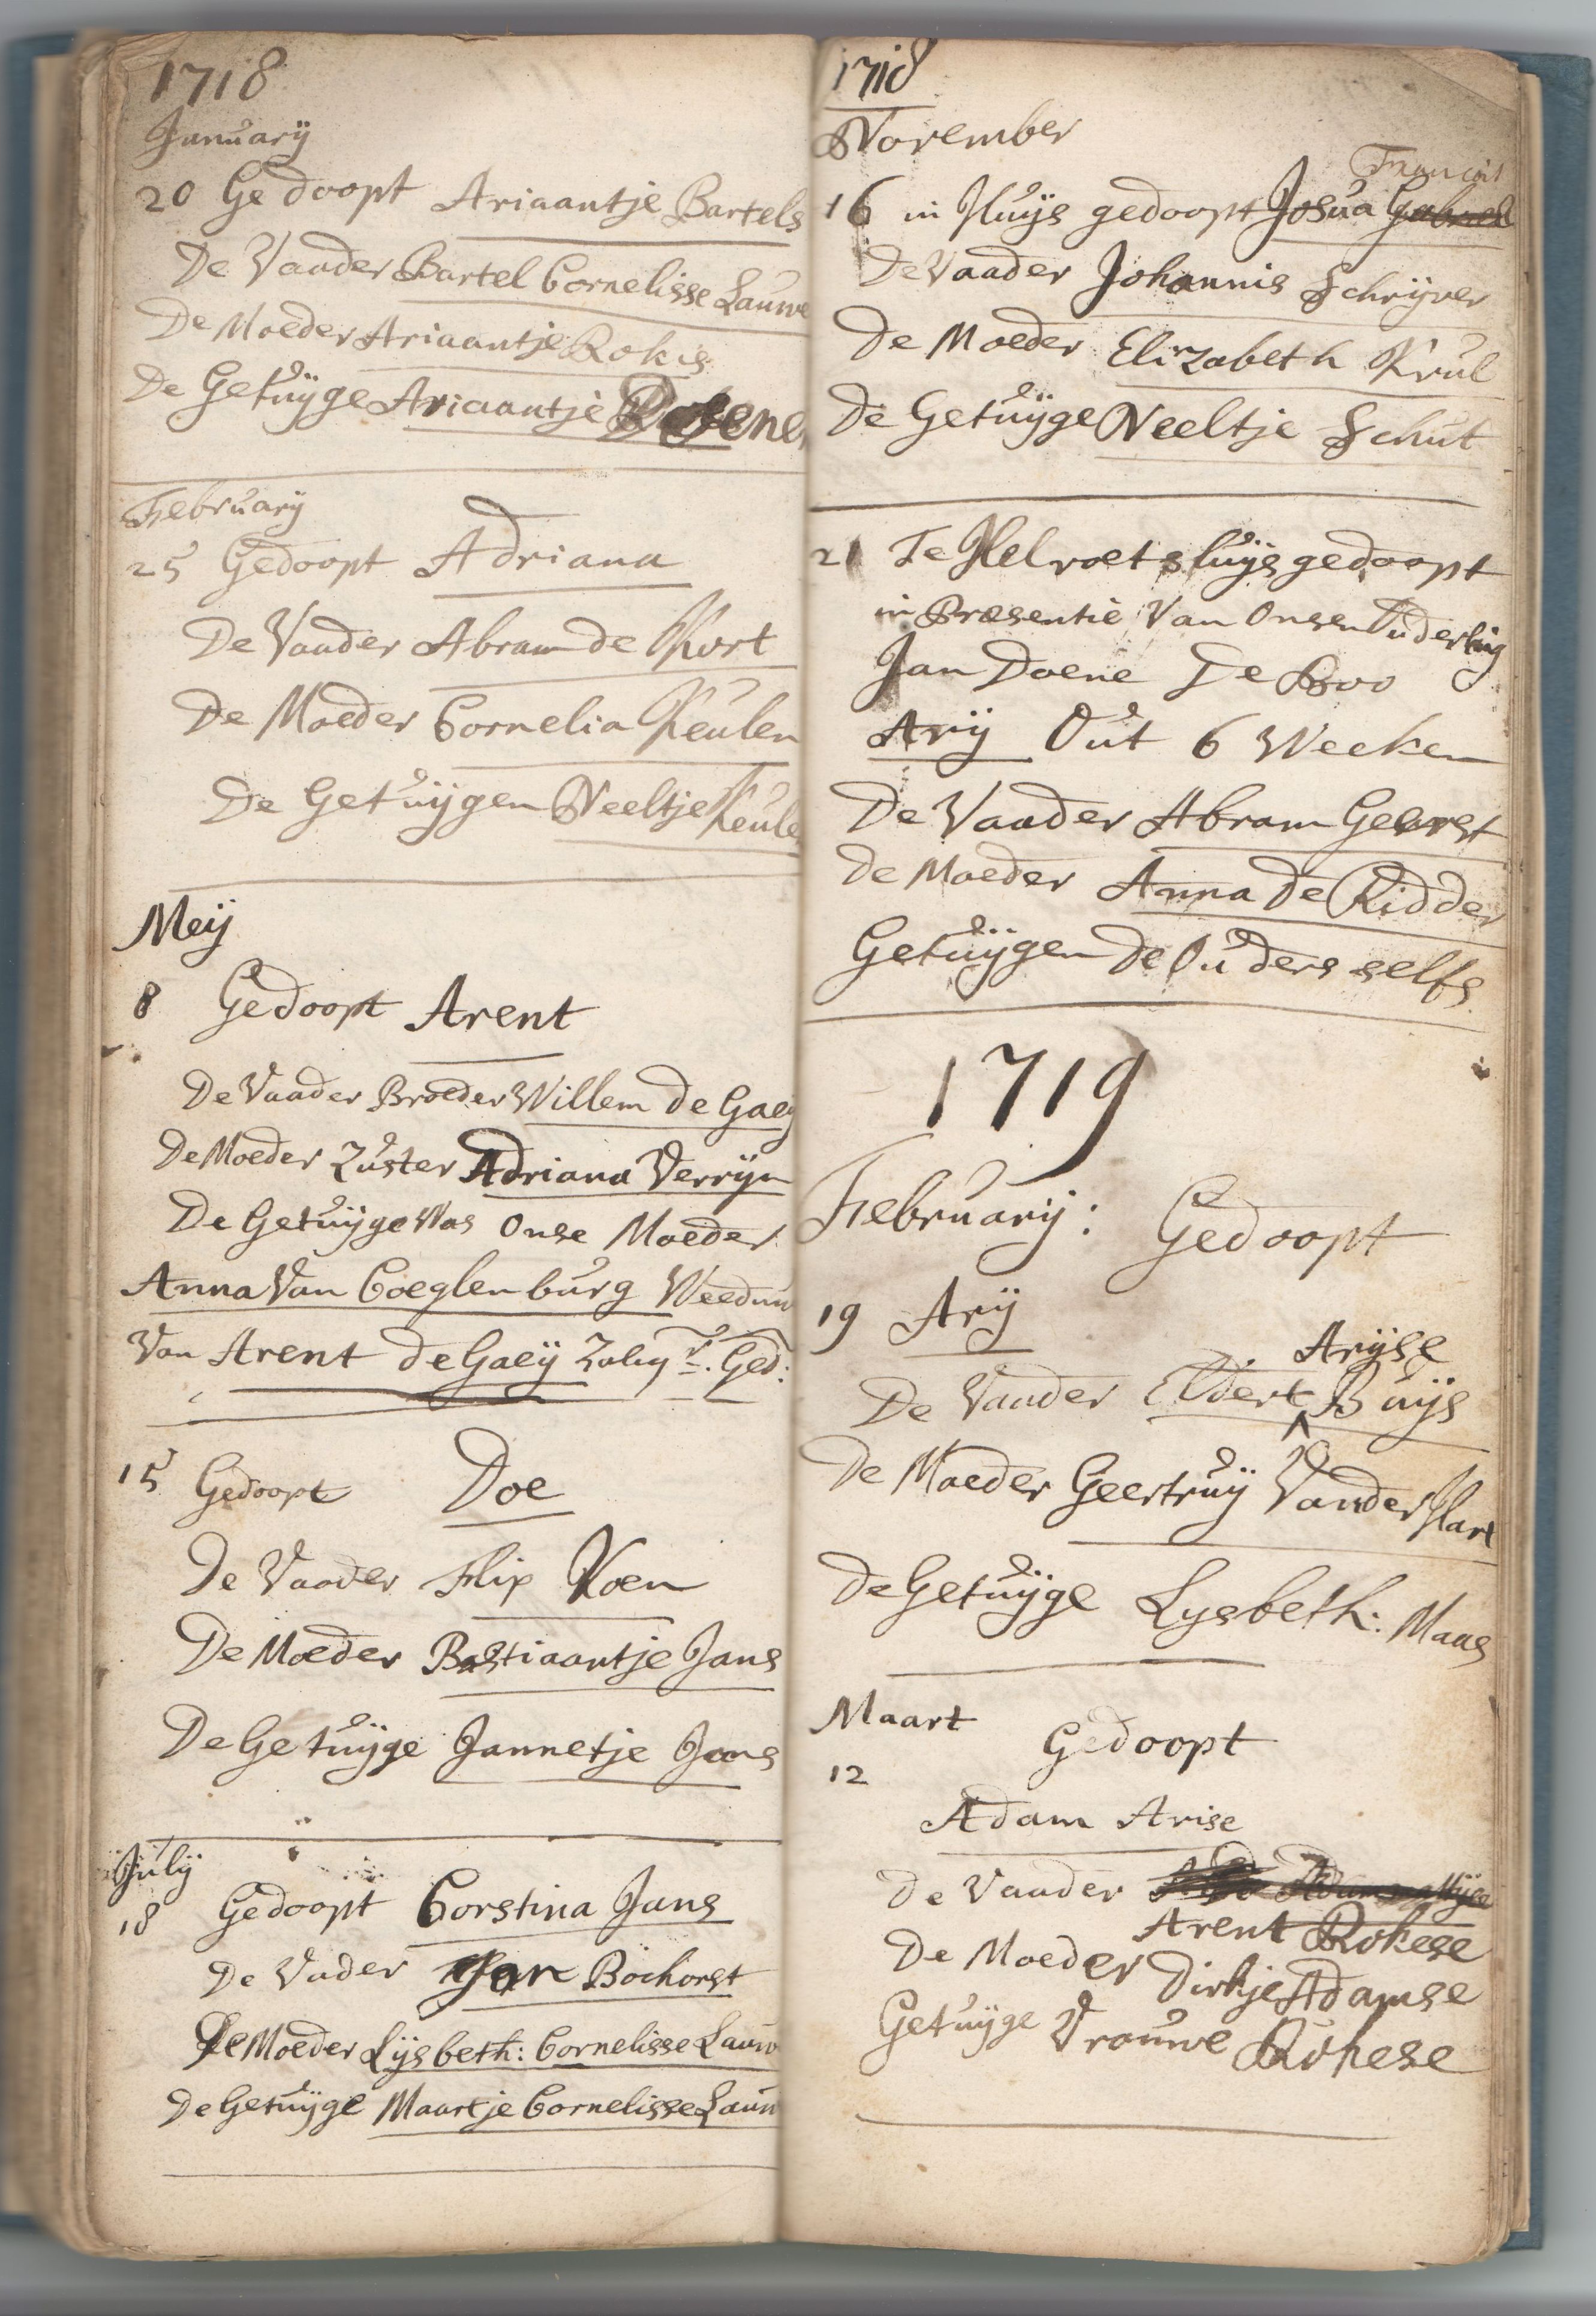 1718
January
20 Gedoopt Ariaantje Bartels
De Vaader Bartel Cornelisse Lauwe
De Moeder Ariaantje Rokis
De Getuÿge Ariaantje
February
25 Gedoopt Adriana
De Vaader Abram de Kort
De Moeder Cornelia Keulen
De Getuÿgen Neeltje Keule
Meÿ
8 Gedoopt Arent
De Vaader Broeder Willem de Gaeÿ
De Moeder Zuster Adriana Verrÿn
De Getuÿge Was Onse Moeder
Anna Van Coeglenburg Weeduw
Van Arent de Gaeÿ Zalig.r Ged:
15 Gedoopt Doe
De Vaader Flip Koen
De Moeder Bastiaantje Jans
De Getuÿge Jannetje Jans
Julÿ
18 Gedoopt Corstina Jans
De Vader Jan Bochorst
De Moeder Lÿsbeth: Cornelisse Lauw
De Getuÿge Maartje Cornelisse Lauw
1718
November
Francois
16 in Huÿs gedoopt Josua Gabriel
De Vaader Johannis Schrÿver
De Moeder Elizabeth Krul
De Getuÿge Neeltje Schut
21 Te Helvoetsluÿs gedoopt
in Præsentie Van Onsen Ouderling
Jan Doene De Boo
Arÿ Out 6 Weeken
De Vaader Abram Geerst
De Moeder Anna De Ridder
Getuÿgen De Ouders selfs.
1719
Februarÿ: Gedoopt
19 Arÿ
Arÿse
De Vaader Eldert ^ Buÿs
De Moeder Geertruÿ Vander Hart
De Getuÿge Lysbeth: Maas
Maart Gedoopt
12
Adam Arise
De Vaader
Arent Rokese
De Moeder Dirkje Adamse
Getuÿge Vrouwe Rokese